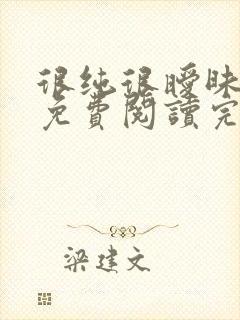 很纯很暧昧
免費閱讀完
梁建文